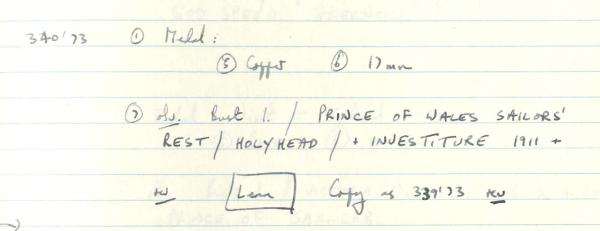 340'73 ① Medal:
⑤ Copper ⑥ 17mm
⑦ obv. Bust l. / PRINCE OF WALES SAILORS'
REST / HOLYHEAD / + INVESTITURE 1911 +
rev Copy as 339'73 rev